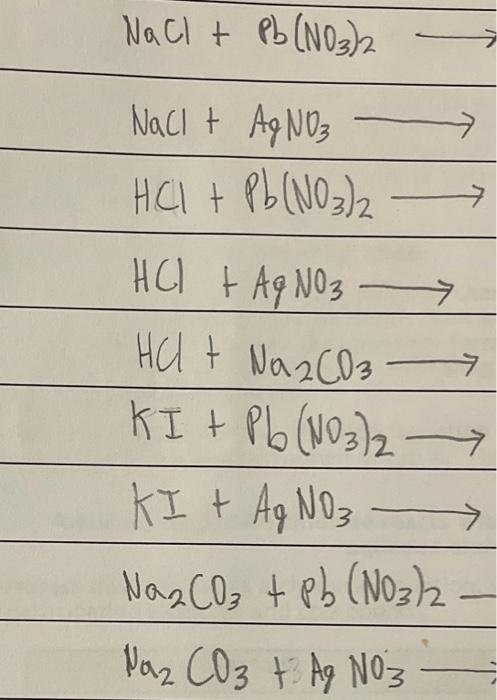 NaCl + Pb(NO3)2 →
NaCl + AgNO3 →
HCl + Pb(NO3)2 →
HCl + AgNO3 →
HCl + Na2CO3 →
KI + Pb(NO3)2 →
KI + AgNO3 →
Na2CO3 + Pb(NO3)2 —
Na2CO3 + AgNO3 →